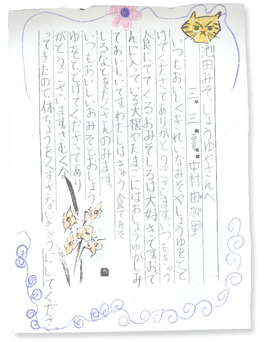 池田みそしょうゆやさんへ
三年三組 中村由加里
いつもおいしくきれいなみそやしょうゆをとど
けてくださってありがとうございます。いつもきゅう
食にでてくるおみそしるは大好きです。おで
んに入っている大根のたまごにはしょうゆがしみ
ておいしいです。わたしはきゅう食でみそ
しるなどをたくさんのみます。
いつもおいしいおみそとおしょう
ゆをとどけてくださってありが
とうございます。さむくな
ってきたので体ちょうをくずさないようにしてくださ